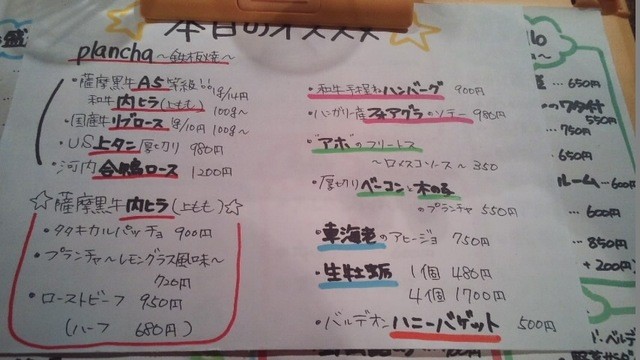 本日のオススメ
plancha ～鉄板焼～
・薩摩黒牛 A5 等級!! 1g/14円
和牛 内ヒラ(上もも) 100g～
・国産牛 リブロース 1g/10円 100g～
・US 上タン 厚切り 980円
・河内 合鴨ロース 1200円
☆薩摩黒牛 内ヒラ(上もも)☆
・タタキカルパッチョ 900円
・プランチャ～レモングラス風味～
720円
・ローストビーフ 950円
(ハーフ 680円)
・和牛手捏ねハンバーグ 900円
・ハンガリー産 フォアグラのソテー 980円
・"アホ"のフリートス
～ロメスコソース～ 350
・厚切りベーコンと木の子
のプランチャ 550円
・車海老のアヒージョ 750円
・生牡蛎 1個 480円
4個 1700円
・バルデオン ハニーバゲット 500円
盛
... 650円
550円
... 750円
650円
ルーム ... 600円
... 600円
... 850円
+ 200円
ド・ベルデ